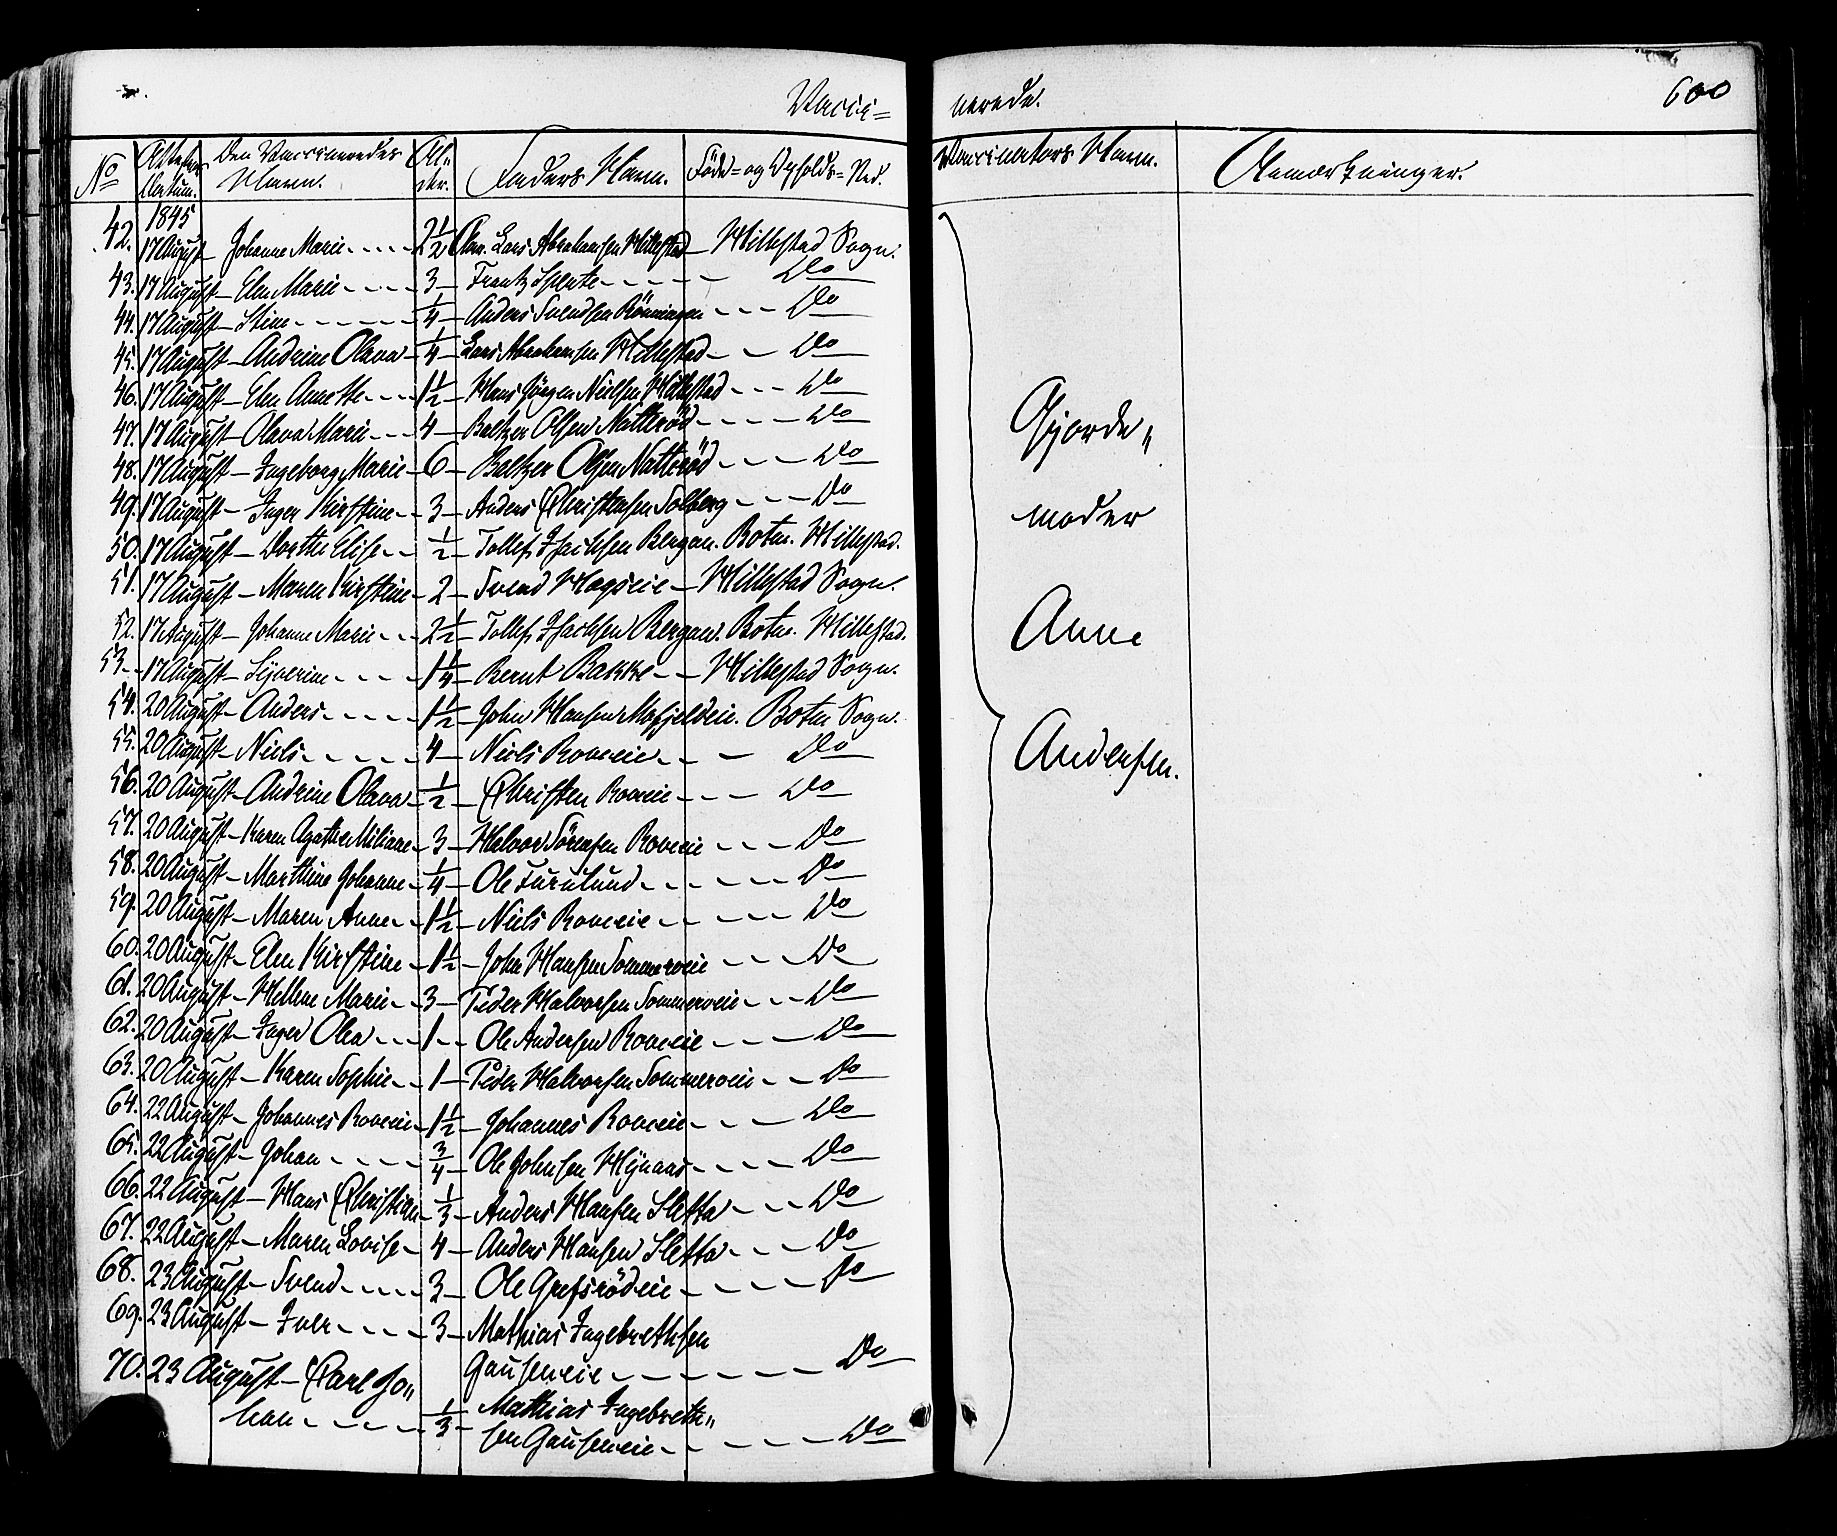 Vacci=
nerede.
600
No
Attestens Datum.
Den Vaccineredes Navn.
Al=der.
Faders Navn.
Føde= og Opholds=Sted.
Vaccinators Navn.
Anmærkninger.
1845
42. 17 August Johanne Marie 2 1/2 Lars Abrahamsen Hillestad Hillestad Sogn.
43. 17 August Elen Marie 3 Frantz Do
44. 17 August Stine 1/4 Anders Svendsen Rönningen Do
45. 17 August Andrine Olava 1/4 Lars Abrahamsen Hillestad Do
46. 17 August Elen Annette 1 1/2 Hans Jörgen Nielsen Hillestad Do
47. 17 August Olava Marie 4 Baltzer Olsen Natteröd Do
48. 17 August Ingeborg Marie 6 Baltzer Olsen Natteröd Do
49. 17 August Inger Kirstine 3 Anders Christensen Solberg Do
50. 17 August Dorthe Elise 1/2 Tollef Isachsen Bergan. Botne. Hillestad.
51. 17 August Maren Kirstine 2 Svend Hagseie Hillestad Sogn.
52. 17 August Johanne Marie 2 1/2 Tollef Isachsen Bergan. Botne. Hillestad.
53. 17 August Syverine 1 1/4 Bernt Bakke Hillestad Sogn.
54. 20 August Anders 1 1/2 John Hansen Mofjeldeie. Botne Sogn.
55. 20 August Niels 4 Niels Roveeie Do
56. 20 August Andrine Olava 1/2 Christen Roveeie Do
57. 20 August Karen Agathe Miliane 3 Halvor Sörensen Roveeie Do
58. 20 August Marthine Johanne 1/4 Ole Furulund Do
59. 20 August Maren Anne 1 1/2 Niels Roveeie Do
60. 20 August Elen Kirstine 1 1/2 John Hansen Sommeroeie Do
61. 20 August Hellene Marie 3 Peder Halvorsen Sommeroeie Do
62. 20 August Inger Olea 1 Ole Andersen Roveeie Do
63. 20 August Karen Sophie 1 Peder Halvorsen Sommeroeie Do
64. 22 August Johannes Roveeie 1 1/2 Johannes Roveeie Do
65. 22 August Johan 3/4 Ole Johnsen Do
66. 22 August Hans Christian 1/3 Anders Hansen Sletta Do
67. 22 August Maren Lovise 4 Anders Hansen Sletta Do
68. 23 August Svend 3 Ole Grefsrödeie Do
69. 23 August Iver 3 Mathias Ingebrethsen
Gauseneie Do
70. 23 August Carl Jo„
han 1/3 Mathias Ingebreth„
sen Gauseneie Do
Gjorde„
moder
Anne
Andersen.